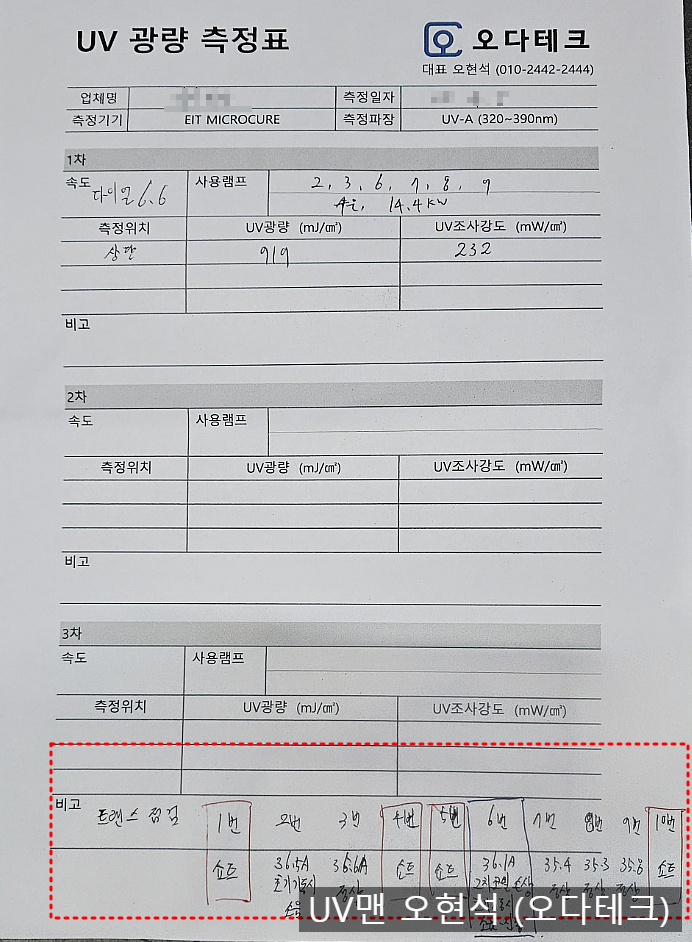 UV 광량 측정표
오다테크
대표 오현석 (010-2442-2444)
업체명 측정일자
측정기기 EIT MICROCURE 측정파장 UV-A (320~390nm)
1차
속도 다이얼 6.6 사용램프 2, 3, 6, 7, 8, 9
14.4kW
측정위치 UV광량 (mJ/㎠) UV조사강도 (mW/㎠)
상단 919 232
비고
2차
속도 사용램프
측정위치 UV광량 (mJ/㎠) UV조사강도 (mW/㎠)
비고
3차
속도 사용램프
측정위치 UV광량 (mJ/㎠) UV조사강도 (mW/㎠)
비고 트랜스 점검 1번 2번 3번 4번 5번 6번 7번 8번 9번 10번
쇼트 36.5A 35.6A 쇼트 쇼트 36.1A 35.4 35.3 35.8 쇼트
초기기동시 정상 2차코일 손상 정상 정상 정상
UV맨 오현석 (오다테크)